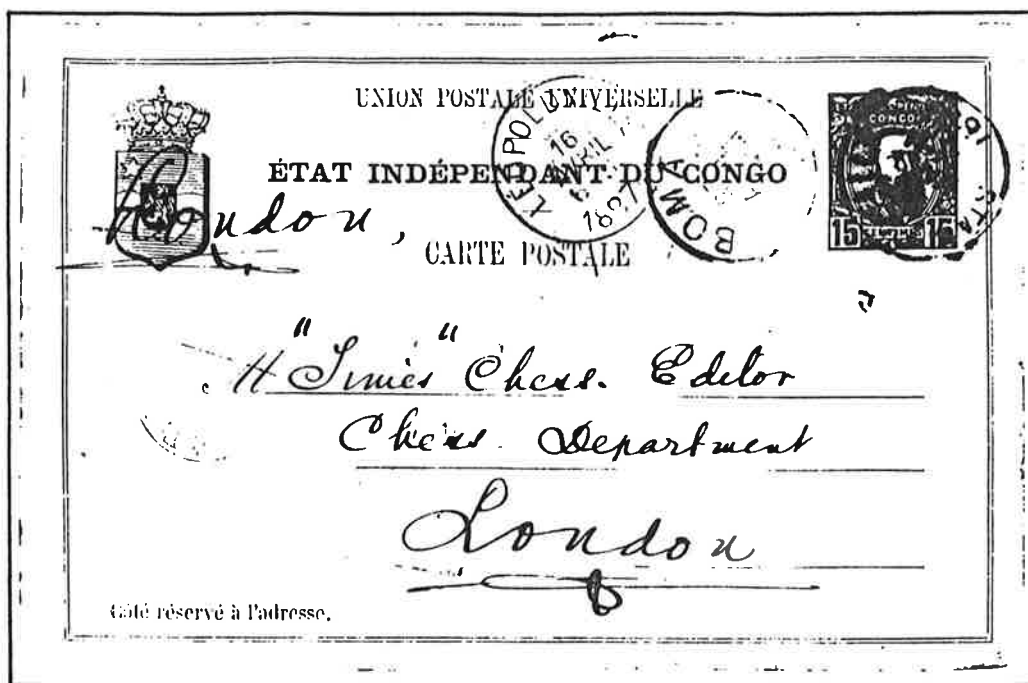 UNION POSTALE UNIVERSELLE
ÉTAT INDÉPENDANT DU CONGO
CARTE POSTALE
LÉOPOLDVILLE
16
AVRIL
1897
BOMA
CONGO
15 CENTIMES 15
London,
"Times" Chess. Editor
Chess. Department
London
Côté réservé à l'adresse.